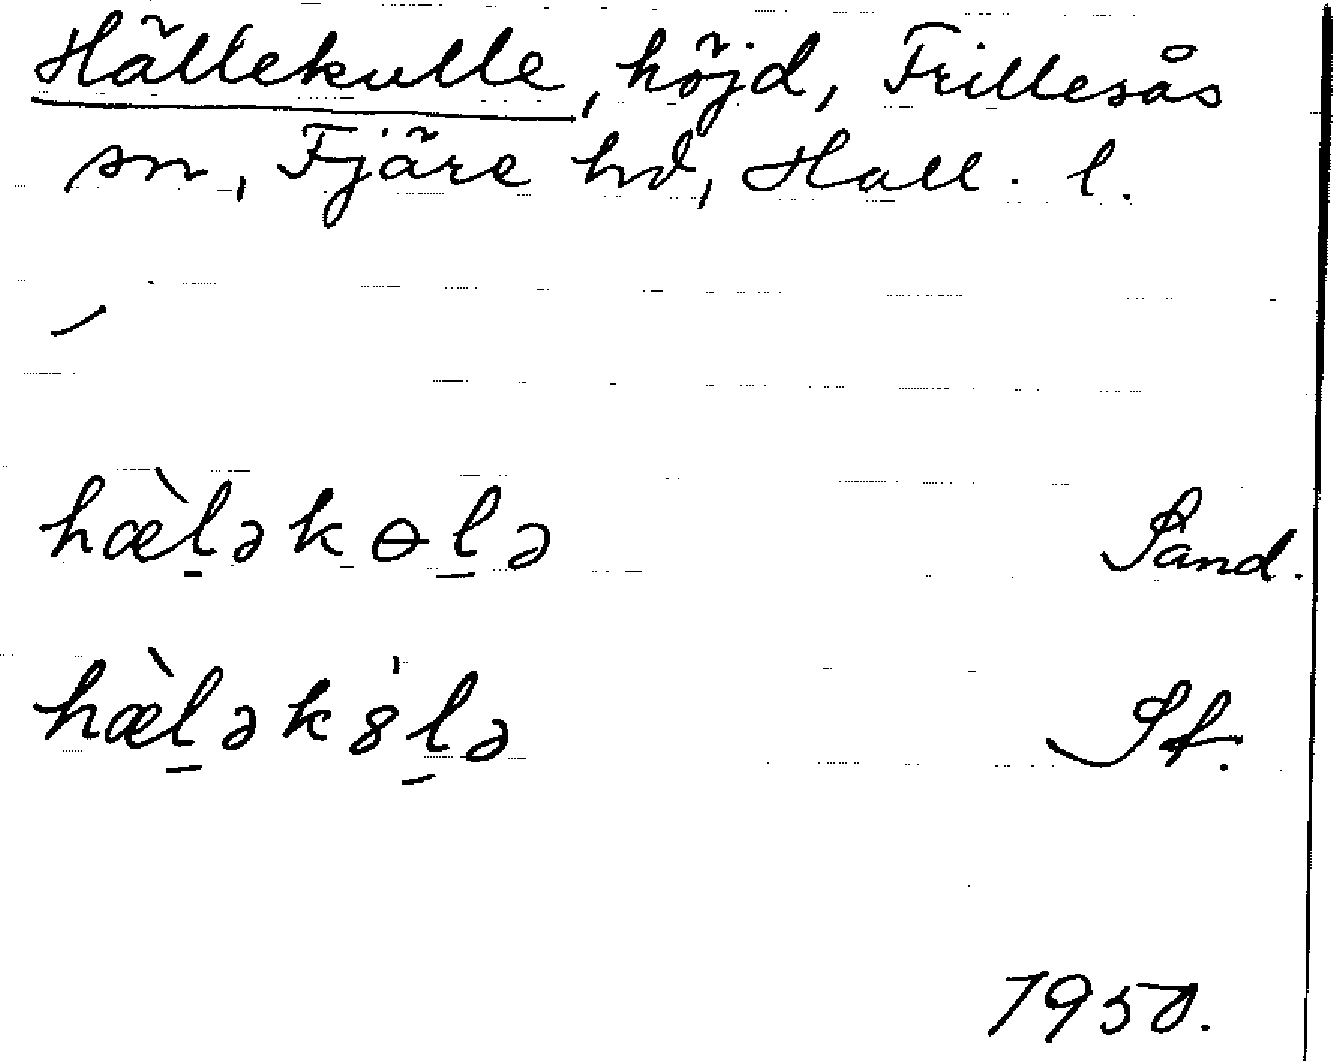 Hällekulle, höjd, Frillesås
sn, Fjäre hd, Hall. l.
hæ̀l̠əkɵl̠ə Sand.
hæ̀l̠ək8̍l̠ə Sf.
1950.